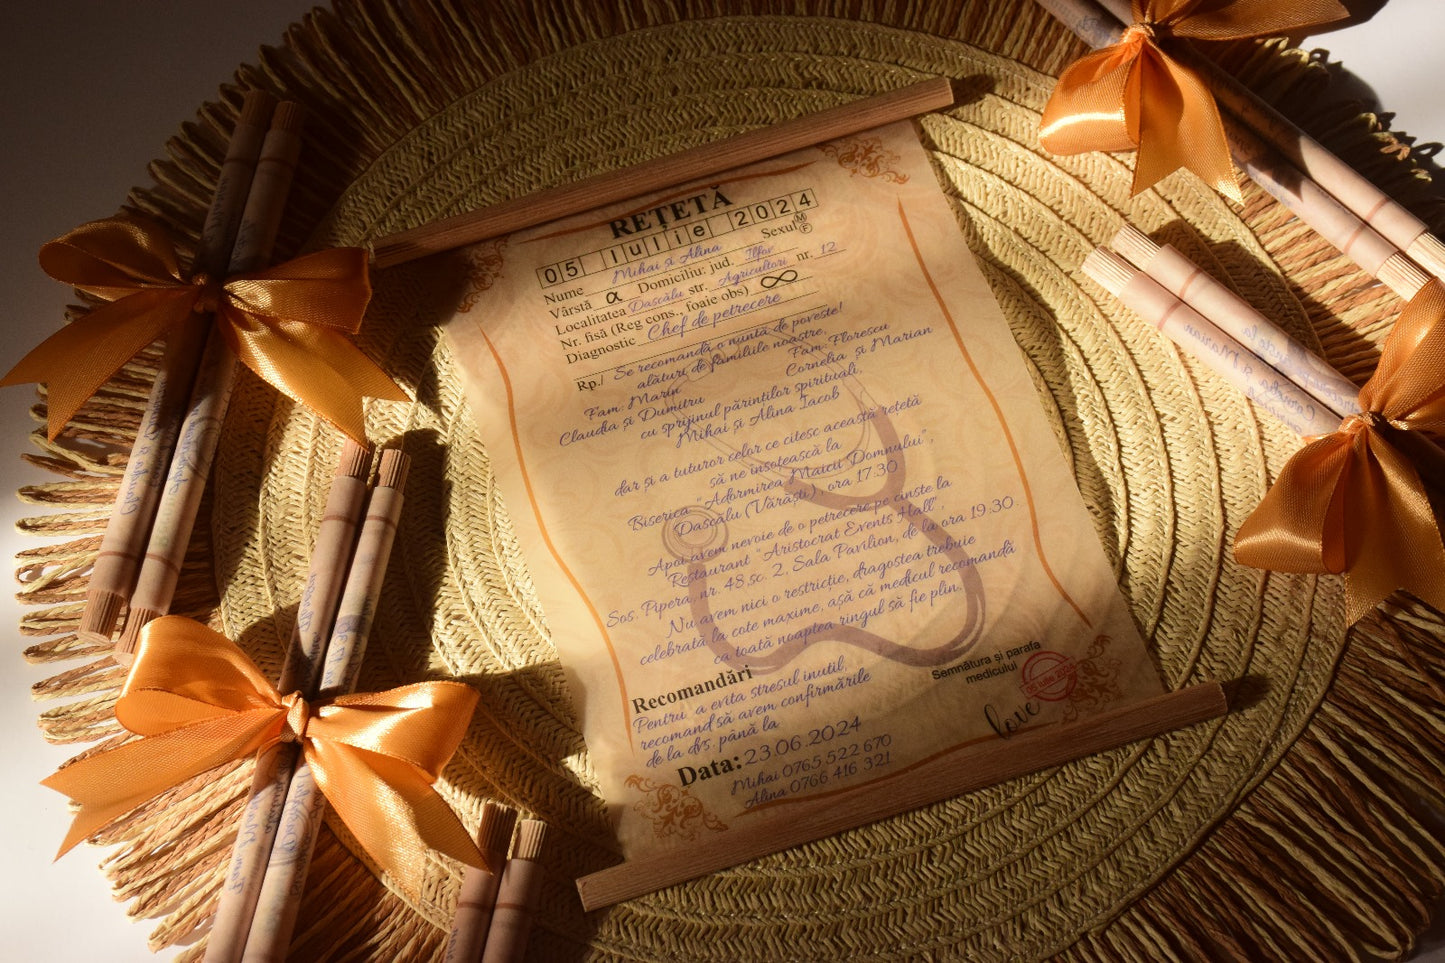 REȚETĂ
05 Iulie 2024
Nume Mihai și Alina Sexul M F
Vârstă α Domiciliu: jud. Ilfov
Localitatea Dascălu str. Agricultori nr. 12
Nr. fisă (Reg cons., foaie obs) ∞
Diagnostic Chef de petrecere
Rp./ Se recomandă o nuntă de poveste!
alături de familiile noastre,
Fam. Marin Fam. Florescu
Claudia și Dumitru Cornelia și Marian
cu sprijinul părinților spirituali,
Mihai și Alina Iacob
dar și a tuturor celor ce citesc această rețetă
să ne însoțească la
Biserica "Adormirea Maicii Domnului",
Dascălu (Vărăști), ora 17.30
Apoi avem nevoie de o petrecere pe cinste la
Restaurant "Aristocrat Events Hall",
Sos. Pipera, nr. 48,sc. 2, Sala Pavilion, de la ora 19:30.
Nu avem nici o restricție, dragostea trebuie
celebrată la cote maxime, așă că medicul recomandă
ca toată noaptea ringul să fie plin.
Recomandări
Pentru a evita stresul inutil,
recomand să avem confirmările
de la dvs. până la
Data: 23.06.2024
Mihai 0765 522 670
Alina 0766 416 321
Semnătura și parafa
medicului
05 Iulie 2024
love